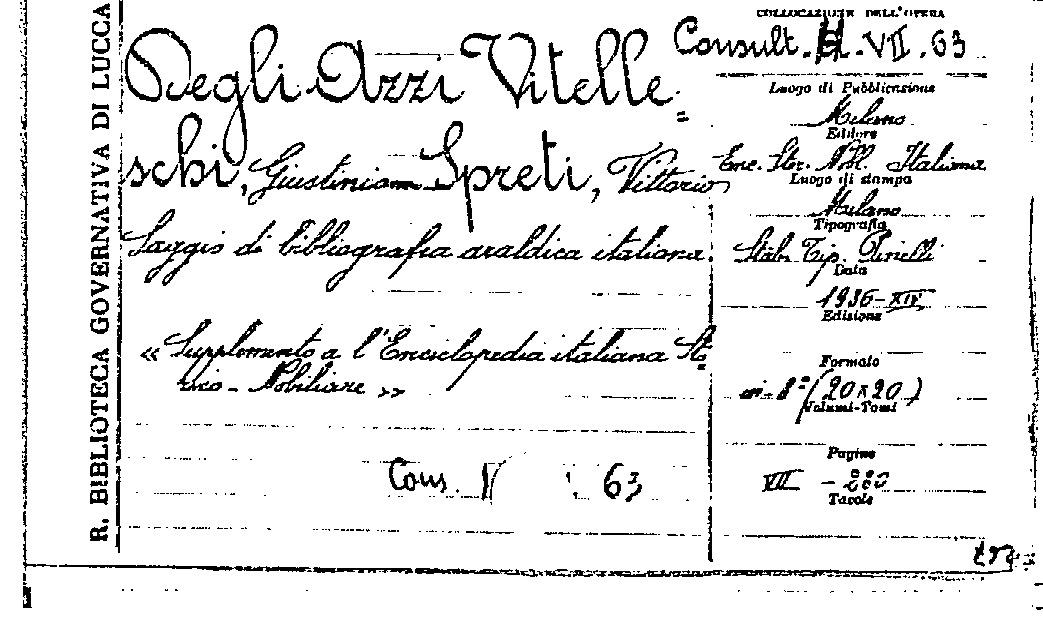 R. BIBLIOTECA GOVERNATIVA DI LUCCA
Degli Azzi Vitelle=
schi, Giustiniano Spreti, Vittorio
Saggio di bibliografia araldica italiana.
« Supplemento a l'Enciclopedia italiana Sto
rico-Nobiliare »
Cons. 63
COLLOCAZIONE DELL'OPERA
Consult. VII. 63
Luogo di Pubblicazione
Milano
Editore
Enc. Stor. Nob. Italiana
Luogo di stampa
Milano
Tipografia
Stab. Tip. Pinelli
Data
1936-XIV
Edizione
Formato
in-8º (20x20)
Volumi-Tomi
Pagine
VII - 280
Tavole